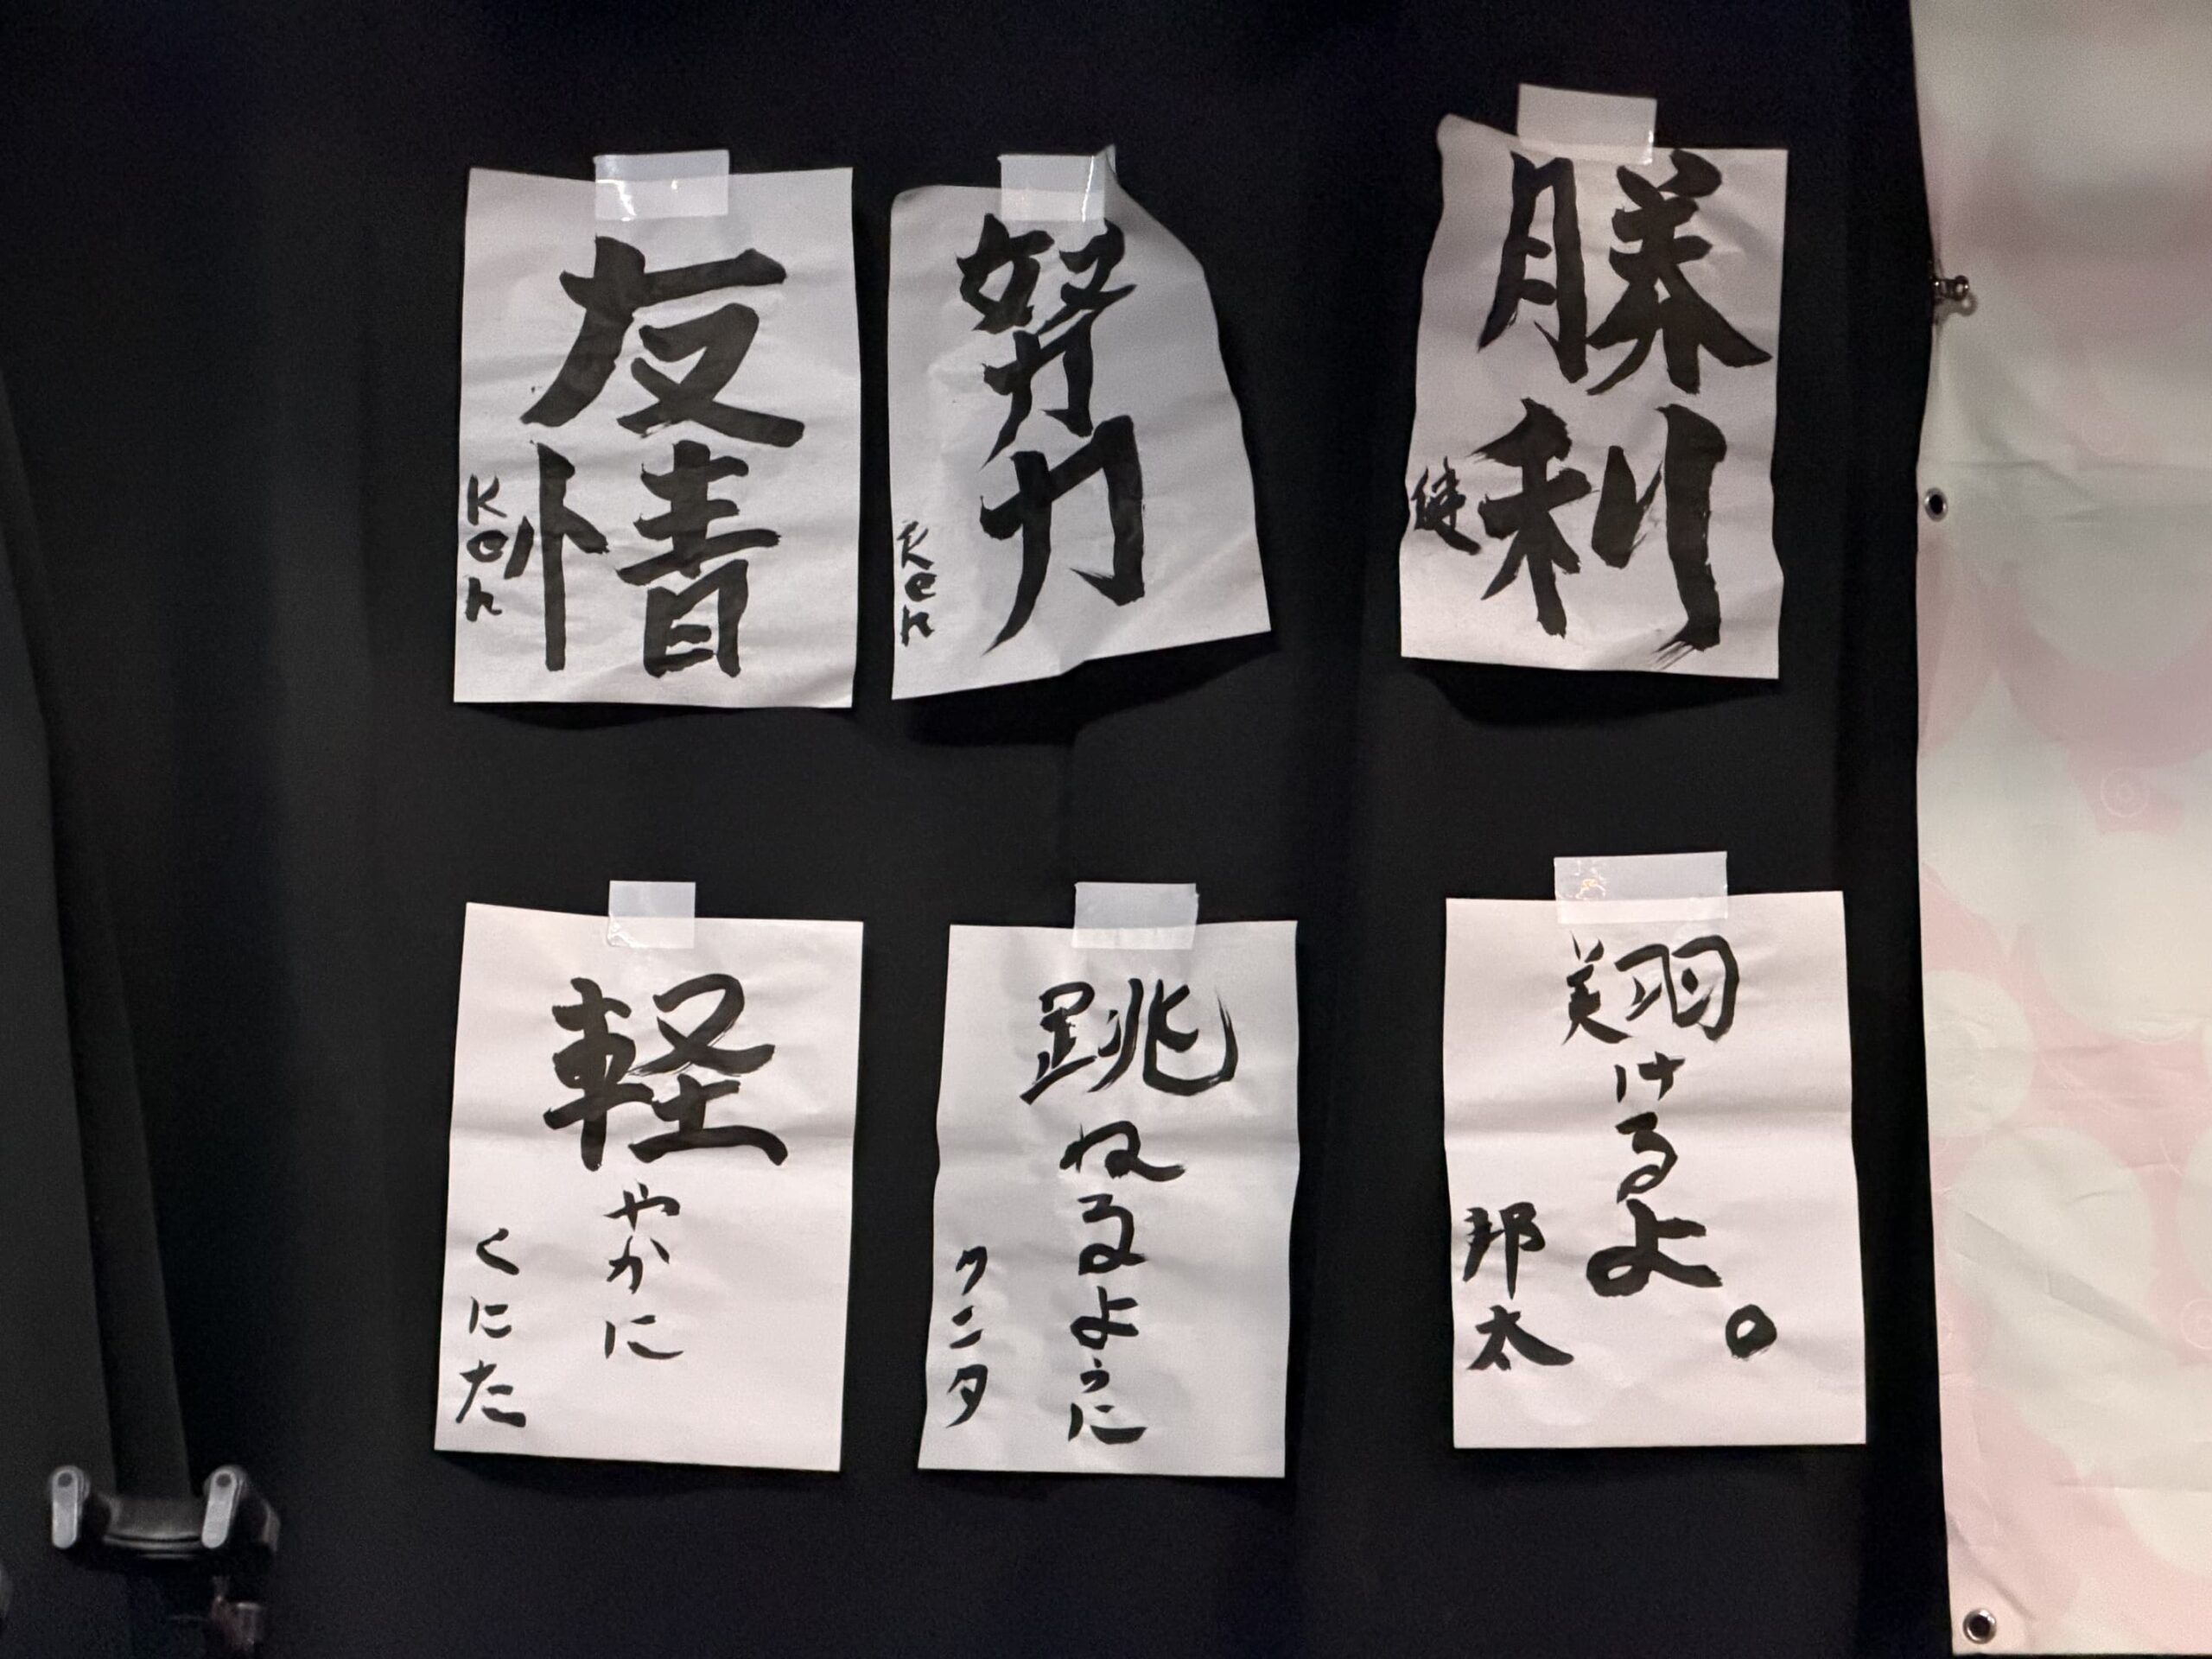 友情
Ken
努力
Ken
勝利
健
軽やかに
くにた
跳ねるように
クニタ
翔けるよ。
邦太